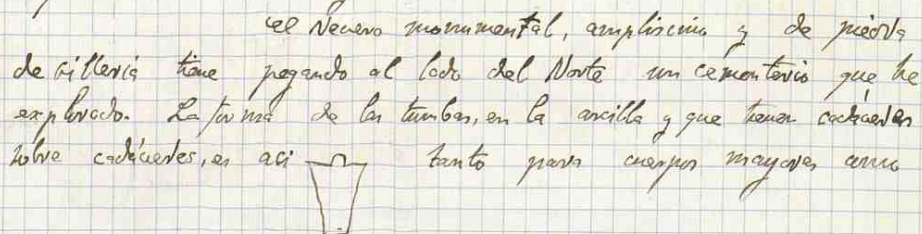 el Nevero monumental, amplisimo y de piedra
de silleria tiene pegando al lado del Norte un cementerio que he
explorado. La forma de las tumbas, en la arcilla y que tienen cadáveres
sobre cadáveres, es asi tanto para cuerpos mayores como